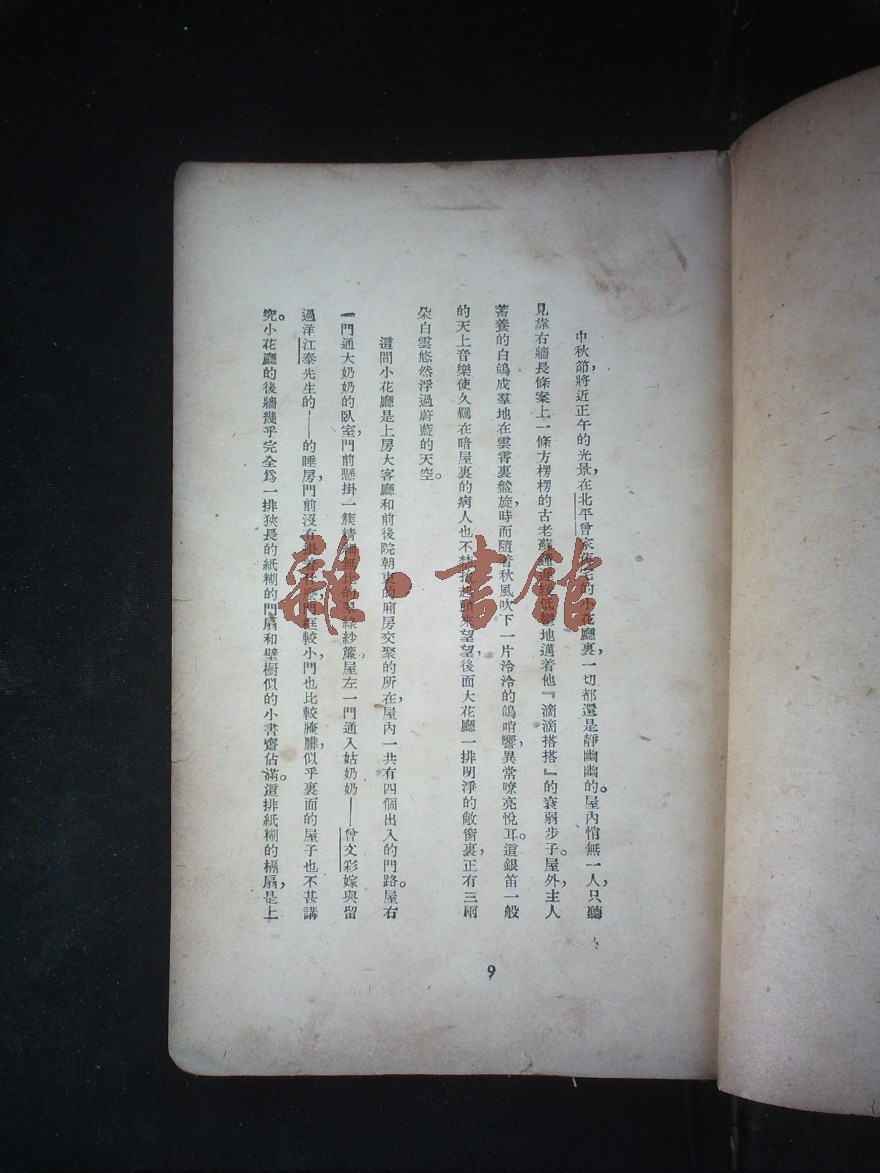 中秋節，將近正午的光景，在北平曾家舊宅的小花廳裏，一切都還是靜幽幽的。屋內悄無一人，只聽
見靠右牆長條案上一條方楞楞的古老蘇鐘遲緩低微地邁着他『滴滴搭搭』的衰弱步子。屋外，主人
蓄養的白鴿成羣地在雲霄裏盤旋，時而隨着秋風吹下一片泠泠的鴿哨響，異常嘹亮悅耳。這銀笛一般
的天上音樂使久羈在暗屋裏的病人也不禁抬起頭來望望，後面大花廳一排明淨的敞窗裏，正有三兩
朵白雲悠然浮過蔚藍的天空。
這間小花廳是上房大客廳和前後院朝東的廂房交聚的所在，屋內一共有四個出入的門路。屋右
一門通大奶奶的臥室，門前懸掛一簇精細無比的翠綠紗簾。屋左一門通入姑奶奶——曾文彩，嫁與留
過洋江泰先生的——的睡房，門前沒有掛着，門框較小，門也比較腌臢，似乎裏面的屋子也不甚講
究。小花廳的後牆幾乎完全爲一排狹長的紙糊的門扇和壁櫥似的小書齋佔滿。這排紙糊的槅扇，是上
9
雜·書館